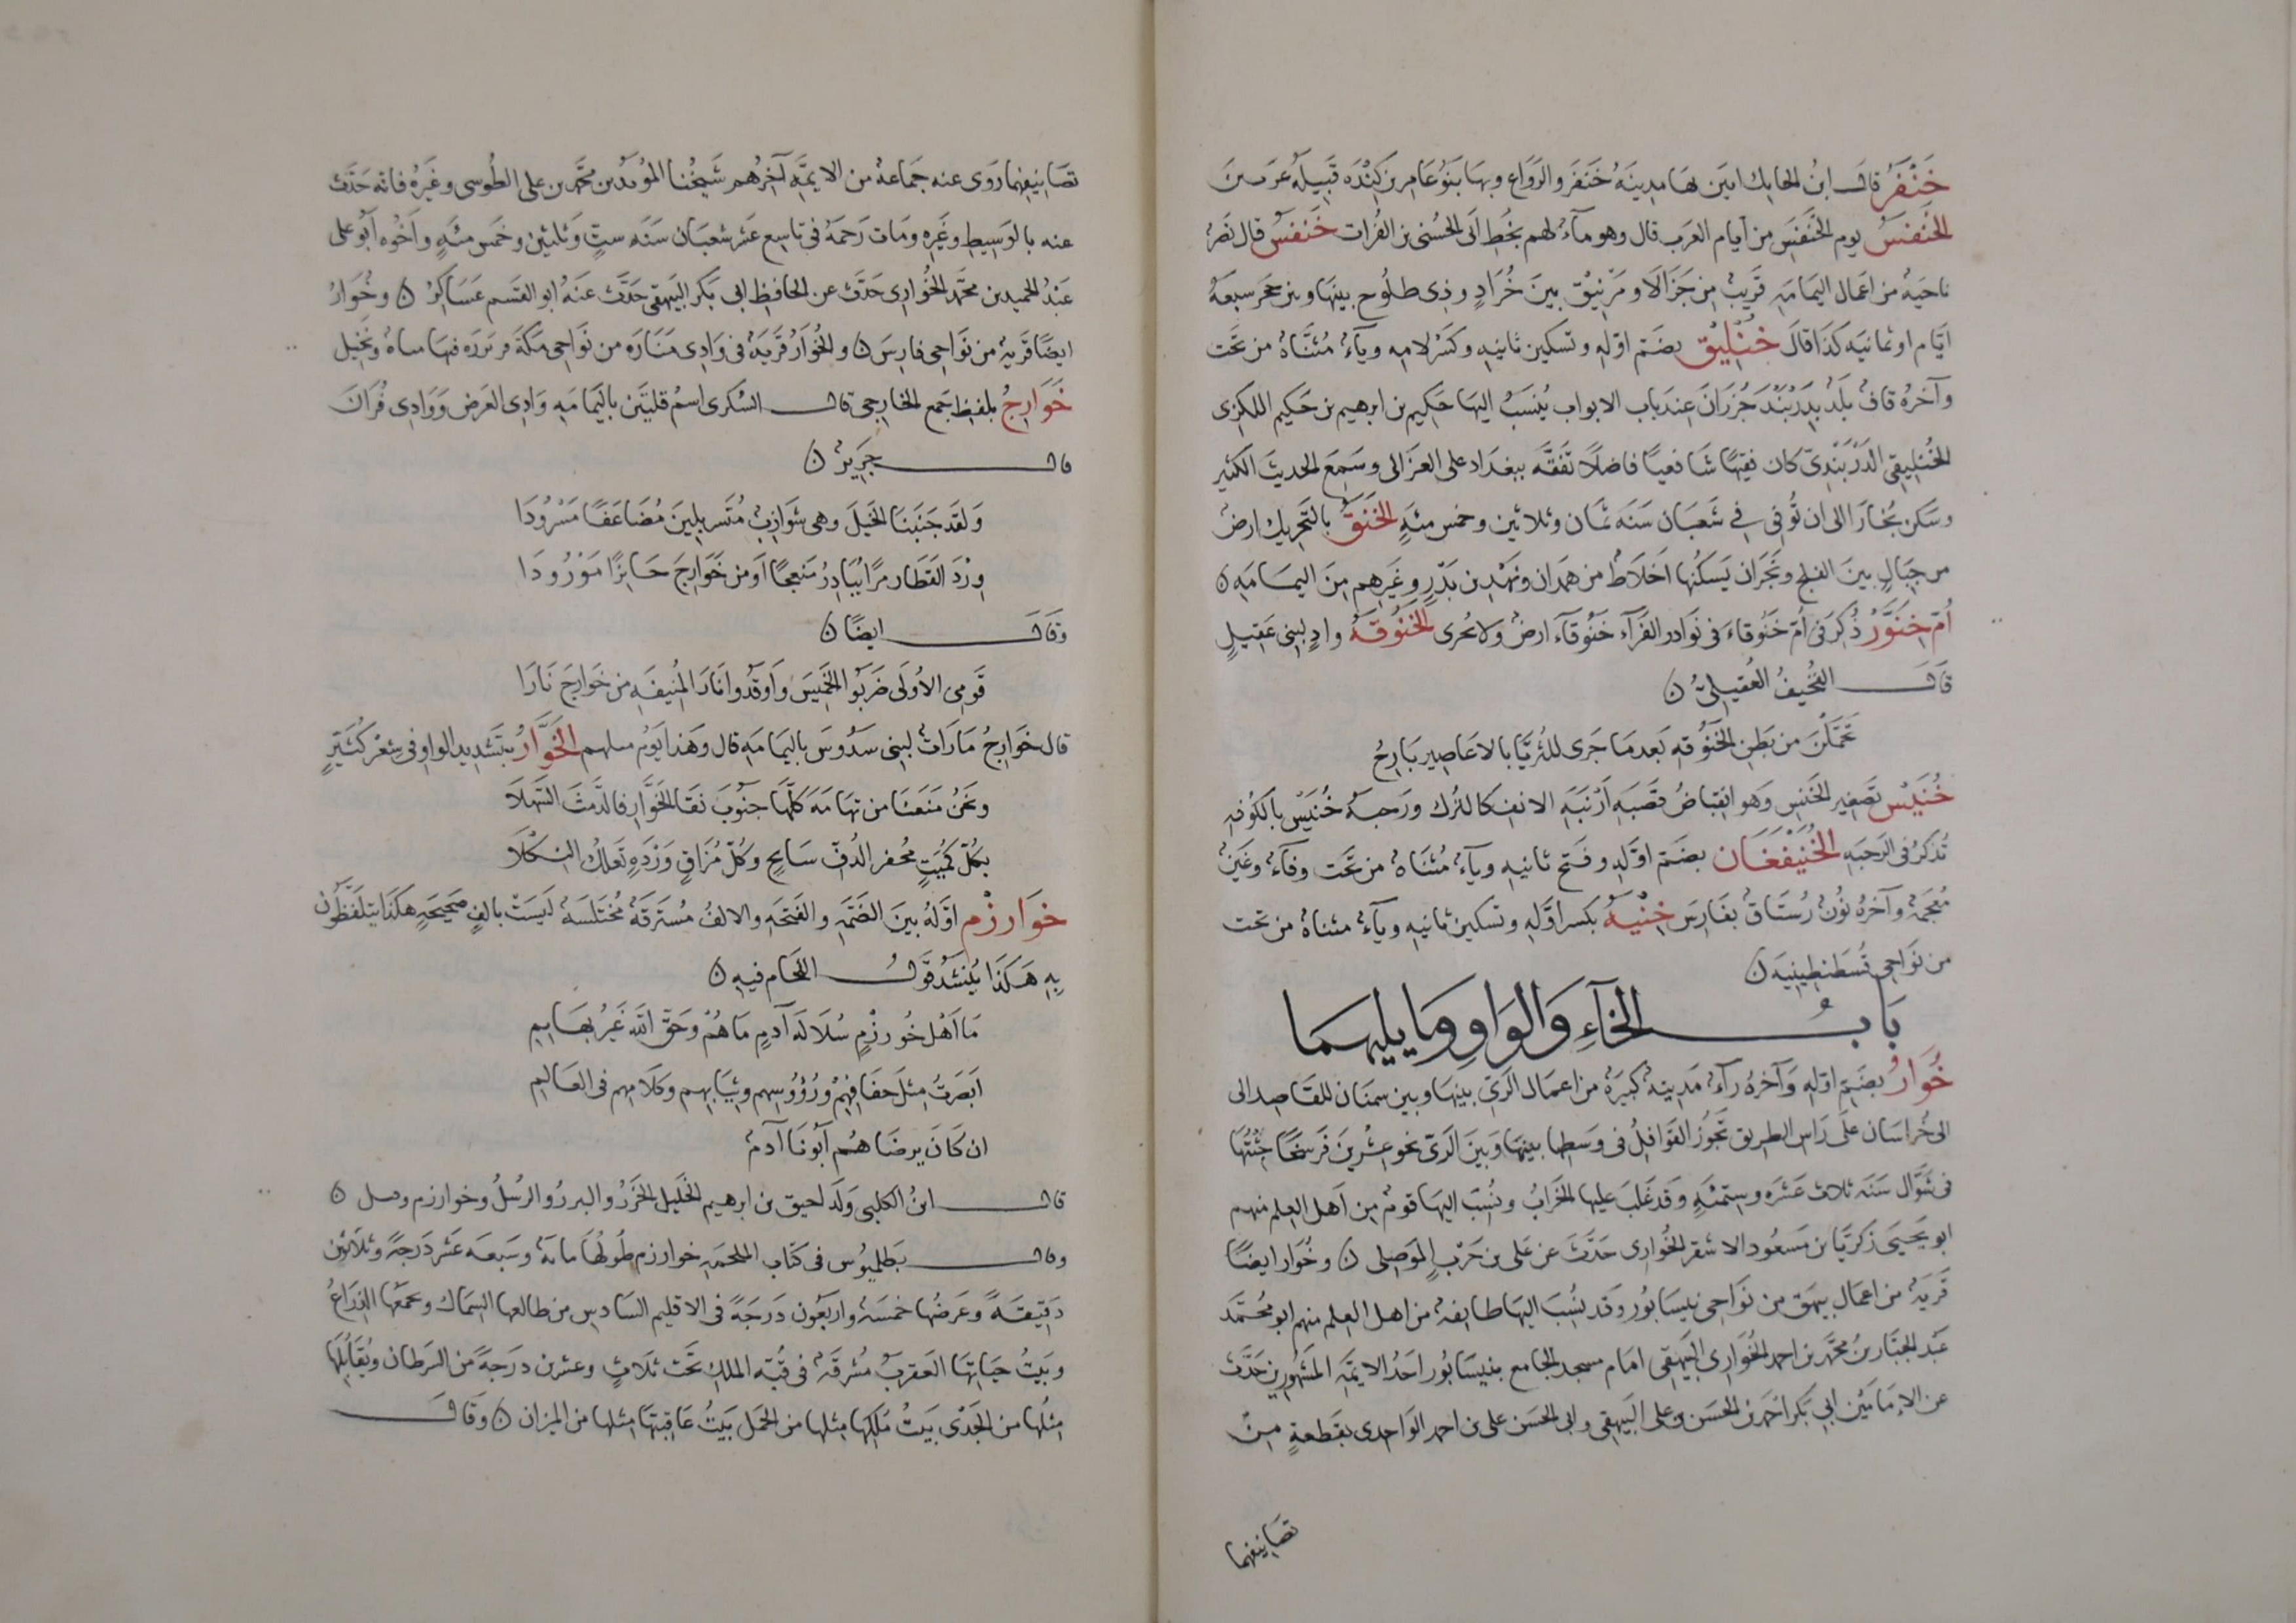 خَنْفَرُ قال ابنُ الحايك ابين بها مدينة خنفر والرواع وبها بنو عامر بن كندة قبيلة عرمين
الخَنفَسُ يوم الخنفس من أيام العرب قال وهو مآء لهم بخط ابى الحسنى بن الفرات خنفس قال نصر
ناحية من اعمال اليمامة قريب من جزالا ومريفق بين خراد وذى طلوح بينها وبين حجر سبعة
ايام او ثمانية كذا قال خُنْلِيق بضم اوله وتسكين ثانيه وكسر لامه ويآء مثناة من تحت
وآخره قاف بلد بدربند خزران عند باب الابواب ينسب اليها حكيم بن ابرهيم بن حكيم اللكزى
الخنليقى الدربندى كان فقيها شافعيا فاضلا تفقه ببغداد على الغزالى وسمع الحديث الكثير
وسكن بخارا الى ان توفى فى شعبان سنه ثمان وثلاثين وخمس مئة الخَنَقُ بالتحريك ارض
من جبال بين الفلج ونجران يسكنها اخلاط من همدان ونهد بن بدر وغيرهم من اليمامه ن
أُمّ خِنَوَّرْ ذكر فى ام خنوقاء فى نوادر الفرآء خنوقآء ارض ولا يحرى الخَنُوقَةُ واد لبنى عقيل
قال القحيف العقيلى ن
تحملن من بطن الخنوقه بعدما جرى للثريا بالاعاصير بارح
خُنَيْس تصغير الخنس وهو انقباض قصبة ارنبة الانف كالترك ورحبة خنيس بالكوفه
تذكر فى الرحبه الخُنَيْفَغَان بضم اوله وفتح ثانيه ويآء مثناة من تحت وفآء وغين
معجمة وآخره نون رستاق بفارس خِنْيَهُ بكسر اوله وتسكين ثانيه ويآء مثناة من تحت
من نواحى قسطنطينيه ن
بابُ الخآءِ وَالوَاوِ وَمَا يليهما
خُوَارُ بضم اوله وآخره رآء مدينة كبيرة من اعمال الرى بينها وبين سمنان للقاصد الى
الى خراسان على راس الطريق تجوز القوافل فى وسطها بينها وبين الرى نحو عشرين فرسخا جئتها
فى شوال سنه ثلاث عشره وستمئة وقد غلب عليها الخراب ونسب اليها قوم من اهل العلم منهم
ابو يحيى زكريا بن مسعود الاشقر الخوارى حدث عن على بن حرب الموصلى ن وخوار ايضا
قرية من اعمال بيهق من نواحى نيسابور وقد نسب اليها طايفة من اهل العلم منهم ابو محمد
عبد الجبار بن محمد بن احمد الخوارى البيهقى امام مسجد الجامع بنيسابور احد الايمة المشهورين حدث
عن الامامين ابى بكر احمد بن الحسن بن على البيهقى وابى الحسن على بن احمد الواحدى بقطعة من
تصانيفهما
تصانيفهما روى عنه جماعة من الايمة آخرهم شيخنا المويد بن محمد بن على الطوسى وغيره فانه حدث
عنه بالوسيط وغيره ومات رحمه فى تاسع عشر شعبان سنه ست وثلثين وخمس مئة واخوه ابو على
عبد الحميد بن محمد الخوارى حدث عن الحافظ ابى بكر البيهقى حدث عنه ابو القسم عساكر ن وخوار
ايضا قرية من نواحى فارس ن والخوار قرية فى وادى ستاره من نواحى مكة قرب بزره فيها مياه ونخيل
خَوَارِجُ بلفظ جمع الخارجى قال السكرى اسم قليتين باليمامه وادى العرض ووادى قران
قال جرير ن
ولقد جنبنا الخيل وهى شوازب متسربلين مضاعفا مسرودا
ورد القطا زمرا يبادر منعجا او من خوارج حايرا مورودا
وقال ايضا ن
قومى الاولى ضربوا الخميس واوقدوا نار المنيفه من خوارج نارا
قال خوارج ماراث لبنى سدوس باليمامه قال وهذا يوم ملهم الخَوَّارُ بتشديد الواو فى شعر كثير
ونحن منعنا من تهامه كلها جنوب نقا الخوار فالدمث السهلا
بكل كميت مجفر الدف سابح وكل مزاق وردة تعلك النكلا
خوارزم اوله بين الضمه والفتحه والالف مسترقة مختلسة ليست بالف صحيحة هكذا يتلفظون
به هكذا ينشد قول اللحام فيه ن
ما اهل خورزم سلالة آدم ما هم وحق الله غير بهايم
ابصرت مثل خفافهم ورؤوسهم وثيابهم وكلامهم فى العالم
ان كان يرضاهم ابونا آدم
قال ابن الكلبى ولد لحيق بن ابرهيم الخليل الخزر والبرر والرسل وخوارزم وميل ن
وقال بطلميوس فى كتاب الملحمه خوارزم طولها ماية وسبعه عشر درجة وثلاثون
دقيقة وعرضها خمسه واربعون درجة فى الاقليم السادس من طالعها السماك ويجمعها الذراع
وبيت حياتها العقرب مشرقة فى قبة الملك تحت ثلاث وعشرين درجة من السرطان ويقابلها
مثلها من الجدى بيت ملكها مثلها من الحمل بيت عاقبتها مثلها من الميزان ن وقال